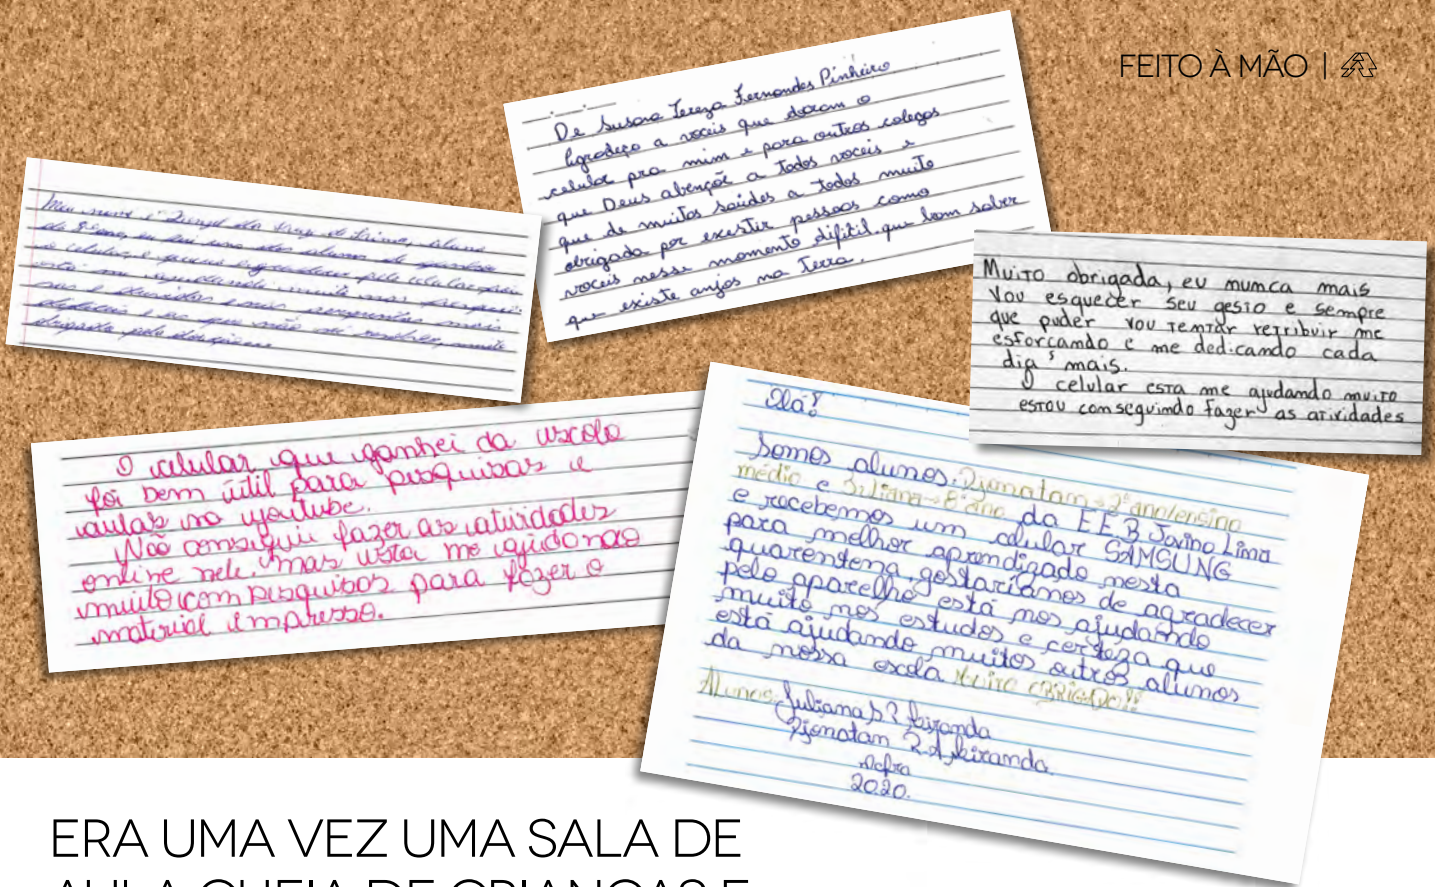 FEITO À MÃO |
De Susana Tereza Fernandes Pinheiro
Agradeço a voceis que doaram o
celular pra mim e para outros colegas
que Deus abençõe a todos voceis e
que de muitas saúdes a todos muito
obrigada por exestir pessoas como
voceis nesse momento difitil. que bom saber
que existe anjos na Terra.
Meu nome é da
do 9º ano, eu fui uma dos alunos
o celular, e quero agradecer pelo celular
me ajudando muito nas
e duvidas
e ao que não
obrigada
Muito obrigada, eu numca mais
vou esquecer seu gesto e sempre
que puder vou temtar retribuir me
esforcando e me dedicando cada
dia mais.
O celular esta me ajudamdo muito
estou comseguimdo fazer as atividades
O celular que ganhei da escola
foi bem útil para pesquisas e
aulas no youtube.
Não consegui fazer as atividades
online nele, mas esta me ajudando
muito com pesquisas para fazer o
material impresso.
Olá!
Somos alunos, Djonatam → 2º ano/ensino
médio e Juliana → 8º ano da EEB Jovino Lima
e recebemos um celular SAMSUNG
para melhor aprendizado nesta
quarentena, gostariamos de agradecer
pelo aparelho está nos ajudando
muito nos estudos e certeza que
está ajudando muitos outros alunos
da nossa escola Muito OBRIGADO!!
Alunos: Juliana
Djonatam
2020.
ERA UMA VEZ UMA SALA DE
AULA CHEIA DE CRIANÇAS E